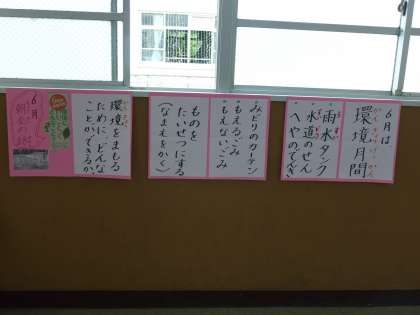 6月は
環境月間
かんきょうげっかん
・雨水タンク
・水道のせん
・へやのでんき
みどりのカーテン
・もえるごみ
・もえないごみ
ものを
たいせつにする
(なまえをかく)
環境をまもる
ために、どんな
ことができるか
6月